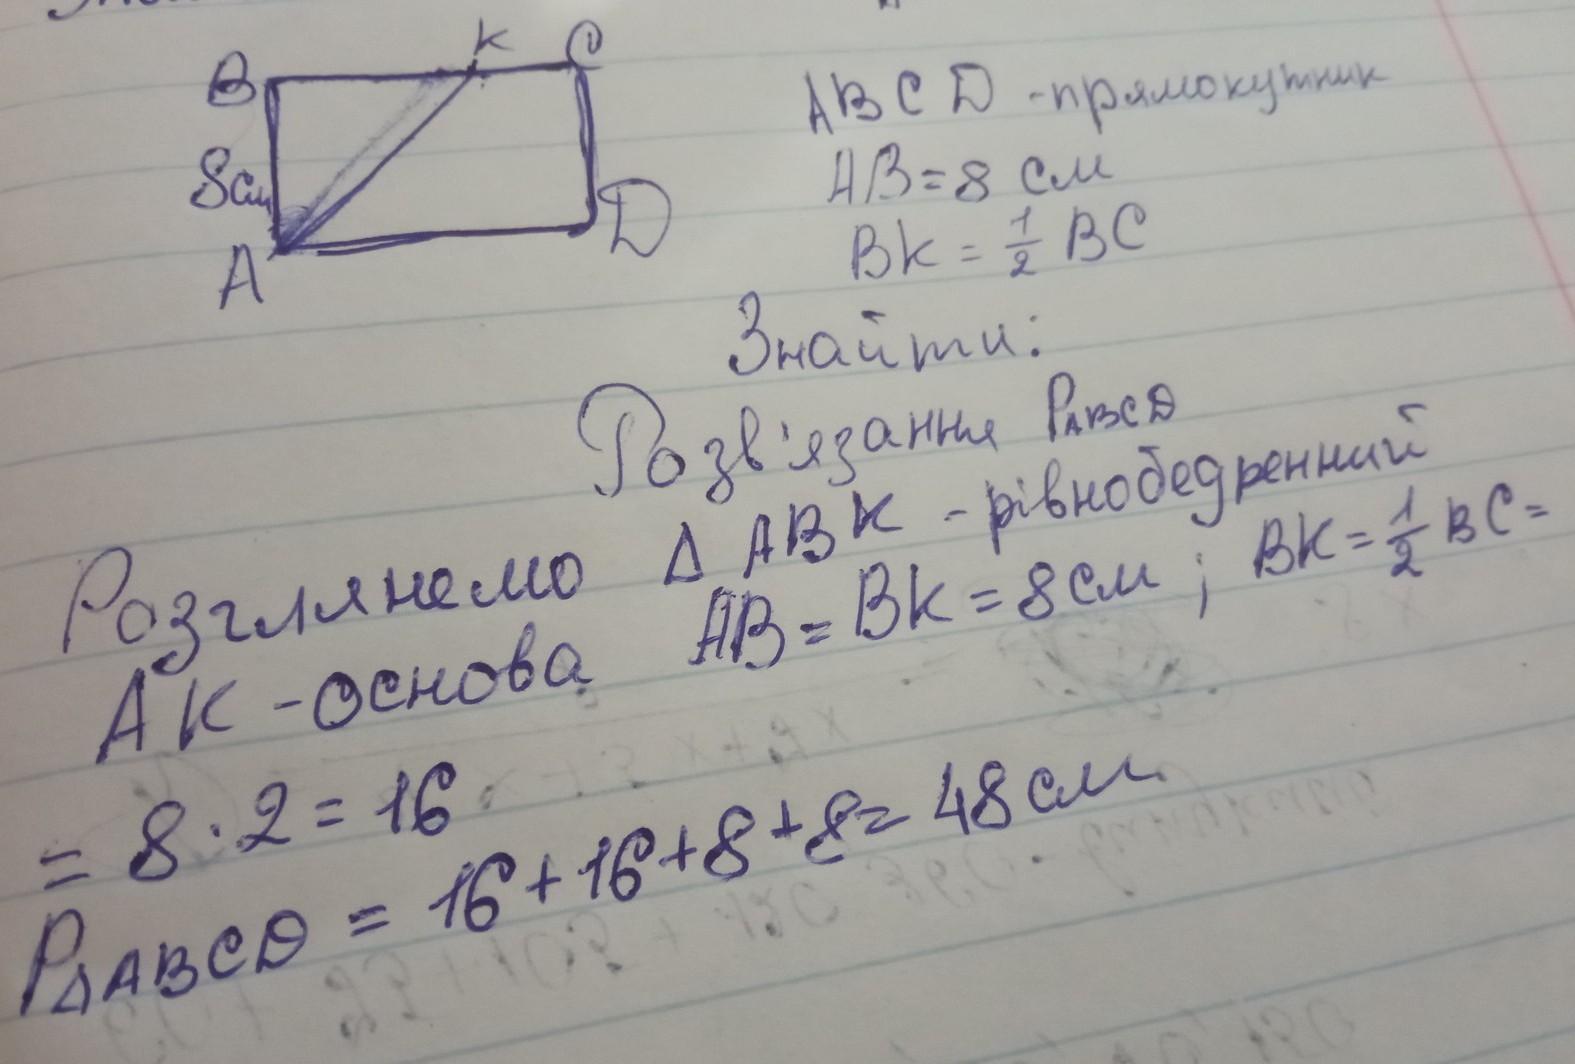 B
K
C
8см
A
D
ABCD - прямокутник
AB = 8 см
BK = 1/2 BC
Знайти:
Розв'язання PABCD
Розглянемо Δ ABK - рівнобедренний
AK - основа AB = BK = 8 см ; BK = 1/2 BC =
= 8 · 2 = 16
PΔABCD = 16 + 16 + 8 + 8 = 48 см